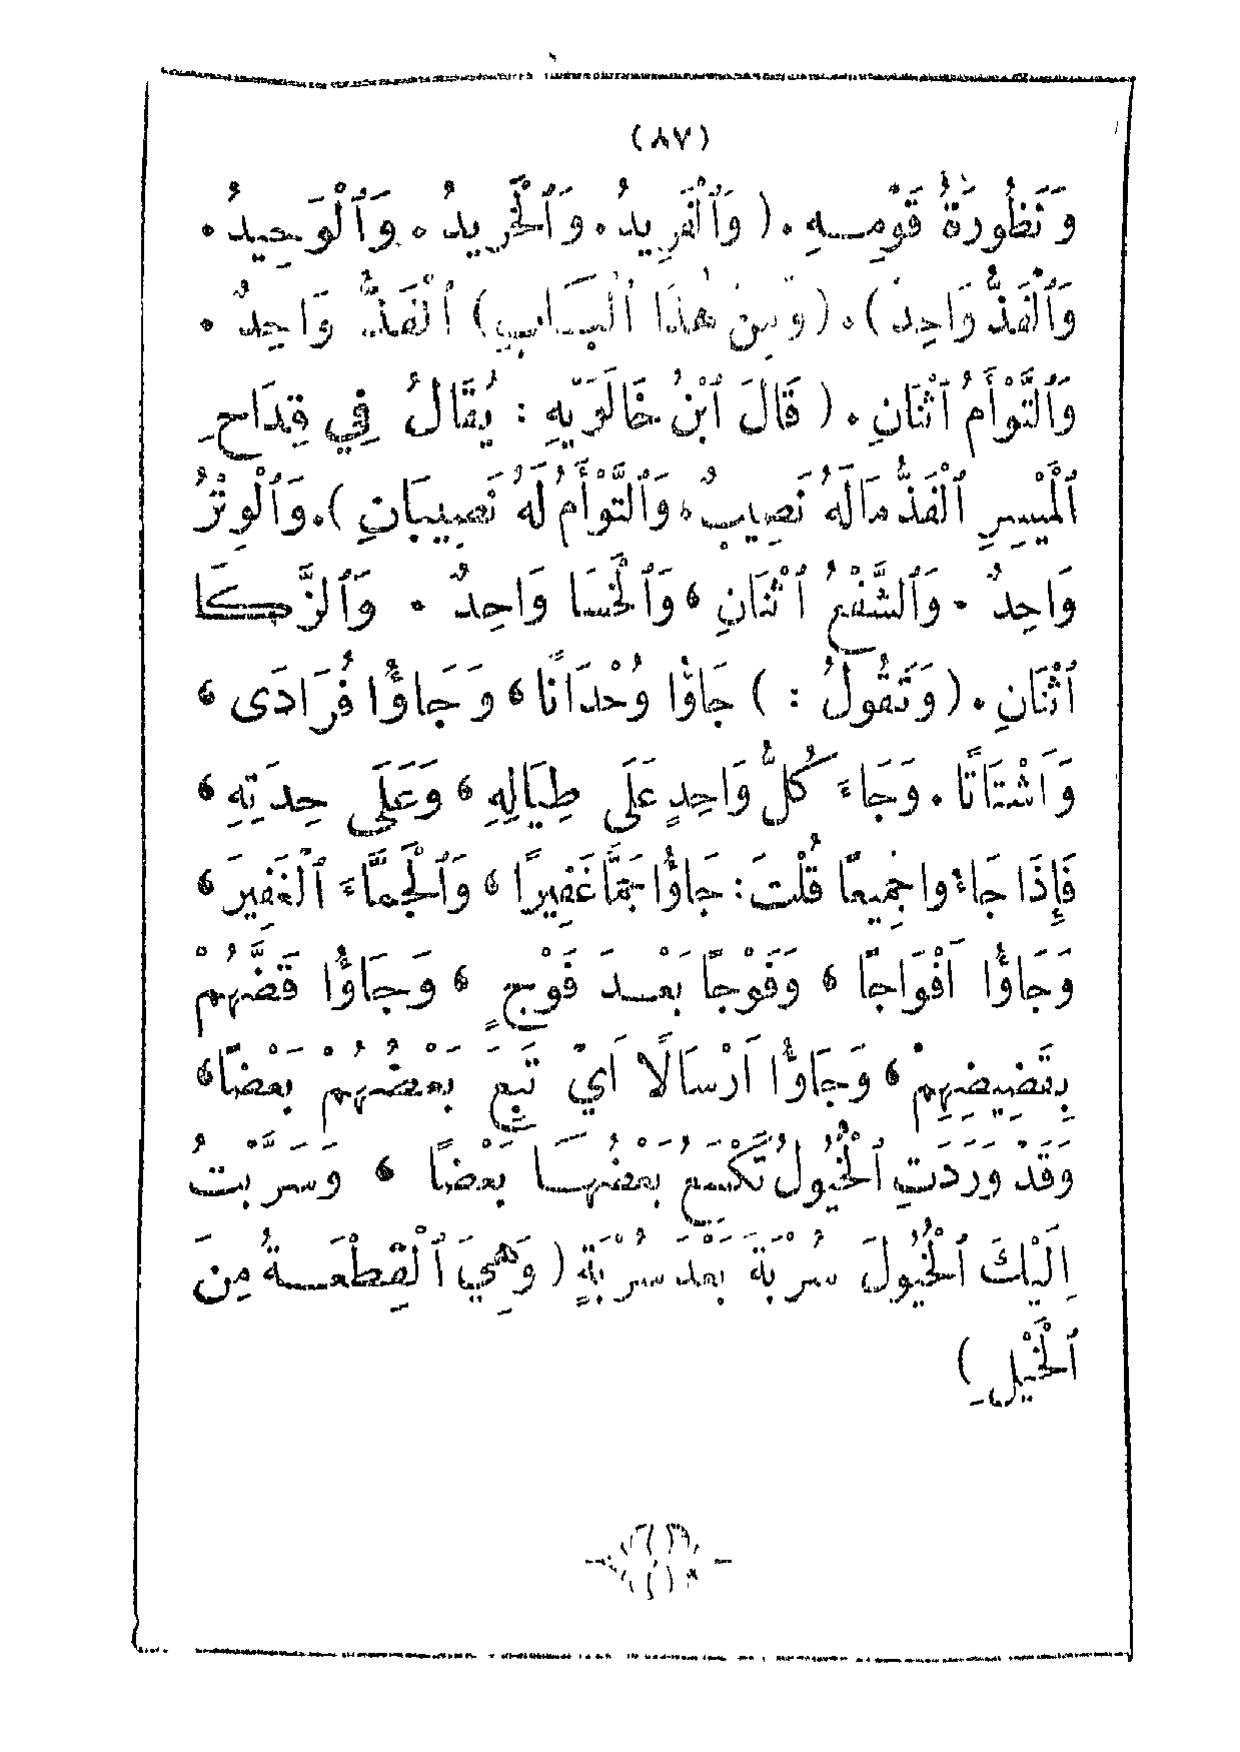 (٨٧)
وَنَظُورَةُ قَوْمِهِ . ( وَٱلْفَرِيدُ . وَٱلْخَرِيدُ . وَٱلْوَحِيدُ .
وَٱلْفَذُّ وَاحِدٌ ) . ( وَمِنْ هٰذَا ٱلْبَابِ ) ٱلْفَذُّ وَاحِدٌ .
وَٱلتَّوْأَمُ ٱثْنَانِ . ( قَالَ ٱبْنُ خَالَوَيْهِ : يُقَالُ فِي قِدَاحِ
ٱلْمَيْسِرِ ٱلْفَذُّ مَا لَهُ نَصِيبٌ ، وَٱلتَّوْأَمُ لَهُ نَصِيبَانِ ) . وَٱلْوِتْرُ
وَاحِدٌ . وَٱلشَّفْعُ ٱثْنَانِ ، وَٱلْخَسَا وَاحِدٌ . وَٱلزَّكَا
ٱثْنَانِ . ( وَتَقُولُ : ) جَاؤُا وُحْدَانًا ، وَجَاؤُا فُرَادَى ،
وَاَشْتَاتًا . وَجَاءَ كُلُّ وَاحِدٍ عَلَى طِيَالِهِ ، وَعَلَى حِدَتِهِ ،
فَإِذَا جَاءُوا جَمِيعًا قُلْتَ : جَاؤُا جَمًّا غَفِيرًا ، وَٱلْجَمَّاءَ ٱلْغَفِيرَ ،
وَجَاؤُا اَفْوَاجًا ، وَفَوْجًا بَعْدَ فَوْجٍ ، وَجَاؤُا قَضَّهُمْ
بِقَضِيضِهِمْ ، وَجَاؤُا اَرْسَالًا اَيْ تَبِعَ بَعْضُهُمْ بَعْضًا ،
وَقَدْ وَرَدَتِ ٱلْخُيُولُ تَكْسَعُ بَعْضُهَا بَعْضًا ، وَسَرَّبْتُ
اِلَيْكَ ٱلْخُيُولَ سُرْبَةً بَعْدَ سُرْبَةٍ ( وَهِيَ ٱلْقِطْعَةُ مِنَ
ٱلْخَيْلِ )